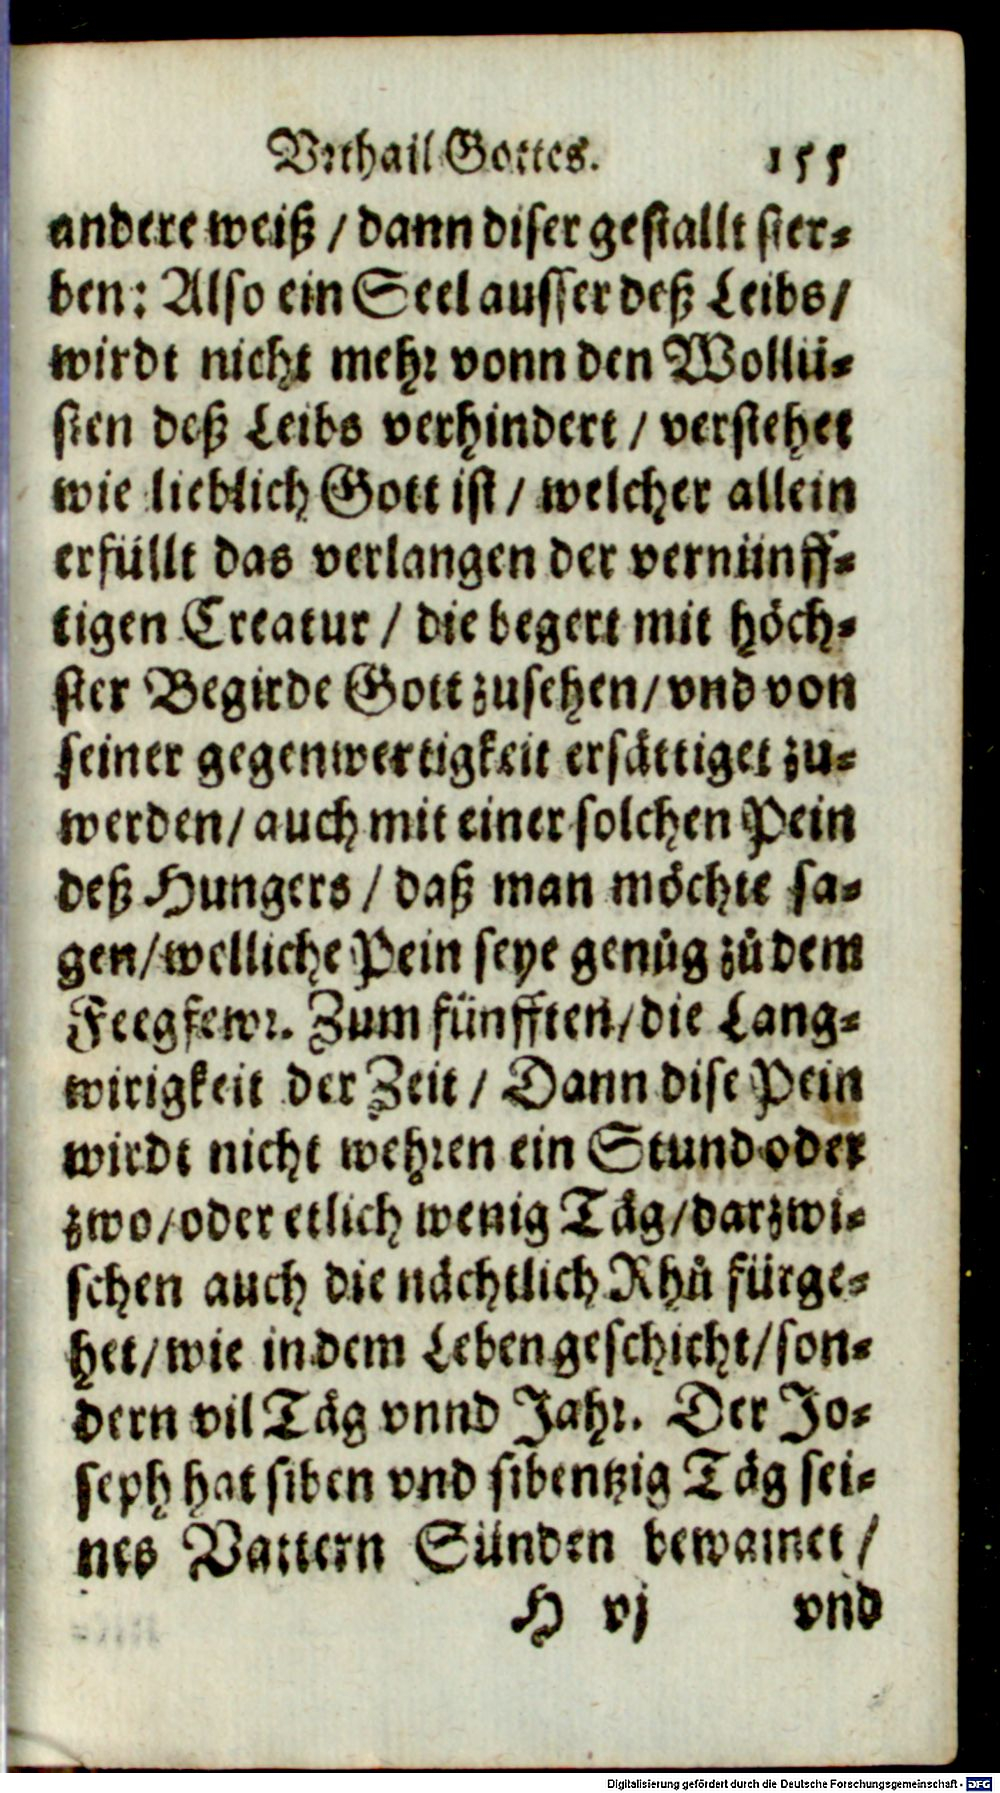 Vrthail Gottes. 155
andere weiß / dann diser gestallt ster⸗
ben: Also ein Seel ausser deß Leibs /
wirdt nicht mehr vonn den Wollü⸗
sten deß Leibs verhindert / verstehet
wie lieblich Gott ist / welcher allein
erfüllt das verlangen der vernünff⸗
tigen Creatur / die begert mit höch⸗
ster Begirde Gott zusehen / vnd von
seiner gegenwertigkeit ersättiget zu⸗
werden / auch mit einer solchen Pein
deß Hungers / daß man möchte sa⸗
gen / welliche Pein seye genůg zů dem
Feegfewr. Zum fünfften / die Lang⸗
wirigkeit der Zeit / Dann dise Pein
wirdt nicht wehren ein Stund oder
zwo / oder etlich wenig Täg / darzwi⸗
schen auch die nächtlich Rhů fürge⸗
het / wie in dem Leben geschicht / son⸗
dern vil Täg vnnd Jahr. Der Jo⸗
seph hat siben vnd sibentzig Täg sei⸗
nes Vattern Sünden bewainet /
H vj vnd
Digitalisierung gefördert durch die Deutsche Forschungsgemeinschaft - DFG